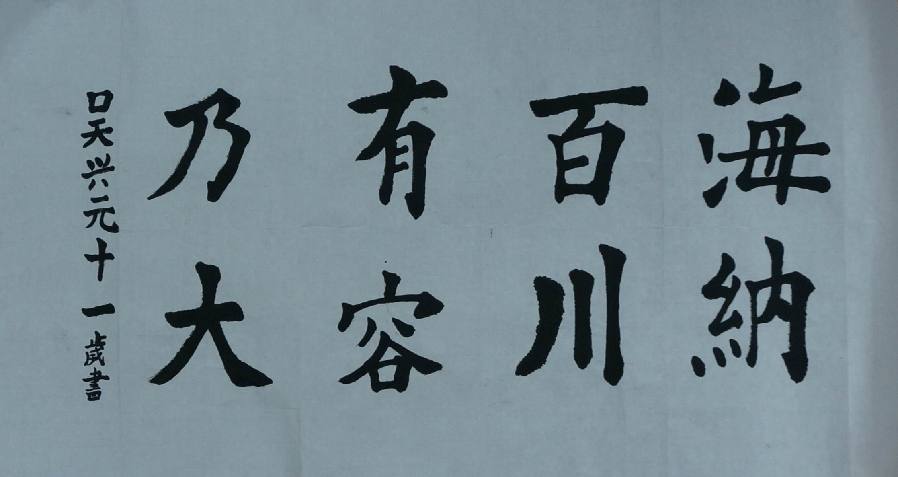 海納
百川
有容
乃大
口天兴元十一歲書